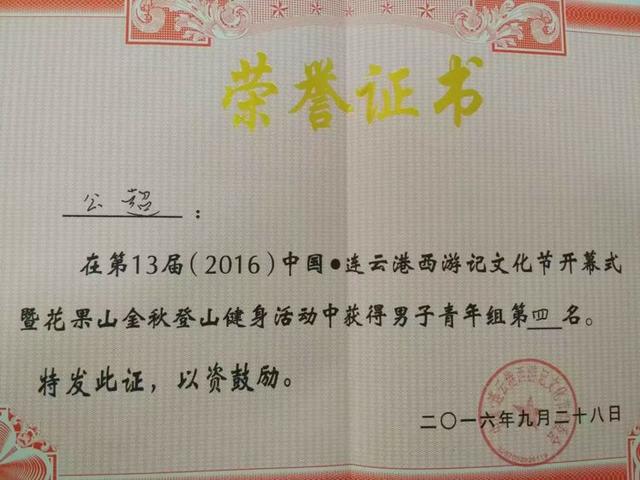 荣誉证书
公超：
在第13届(2016)中国●连云港西游记文化节开幕式
暨花果山金秋登山健身活动中获得男子青年组第四名。
特发此证，以资鼓励。
二〇一六年九月二十八日